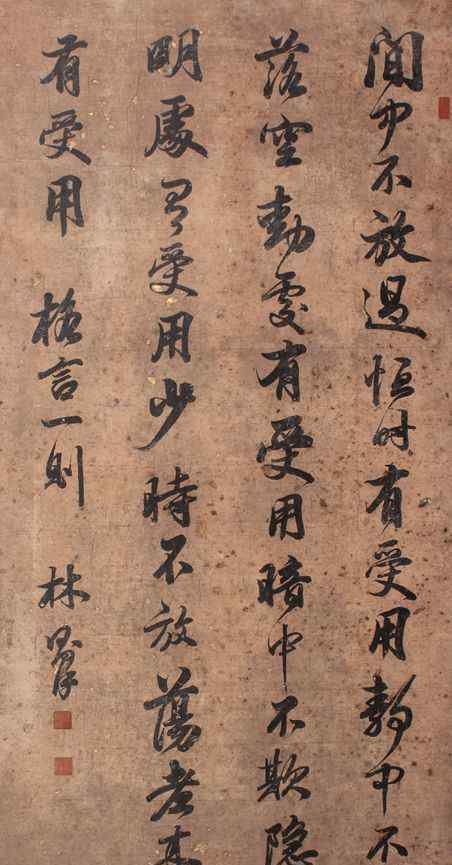 閒中不放過恒时有受用靜中不
落空動處有受用暗中不欺隱
明處有受用少時不放蕩老來
有受用 格言一則 林